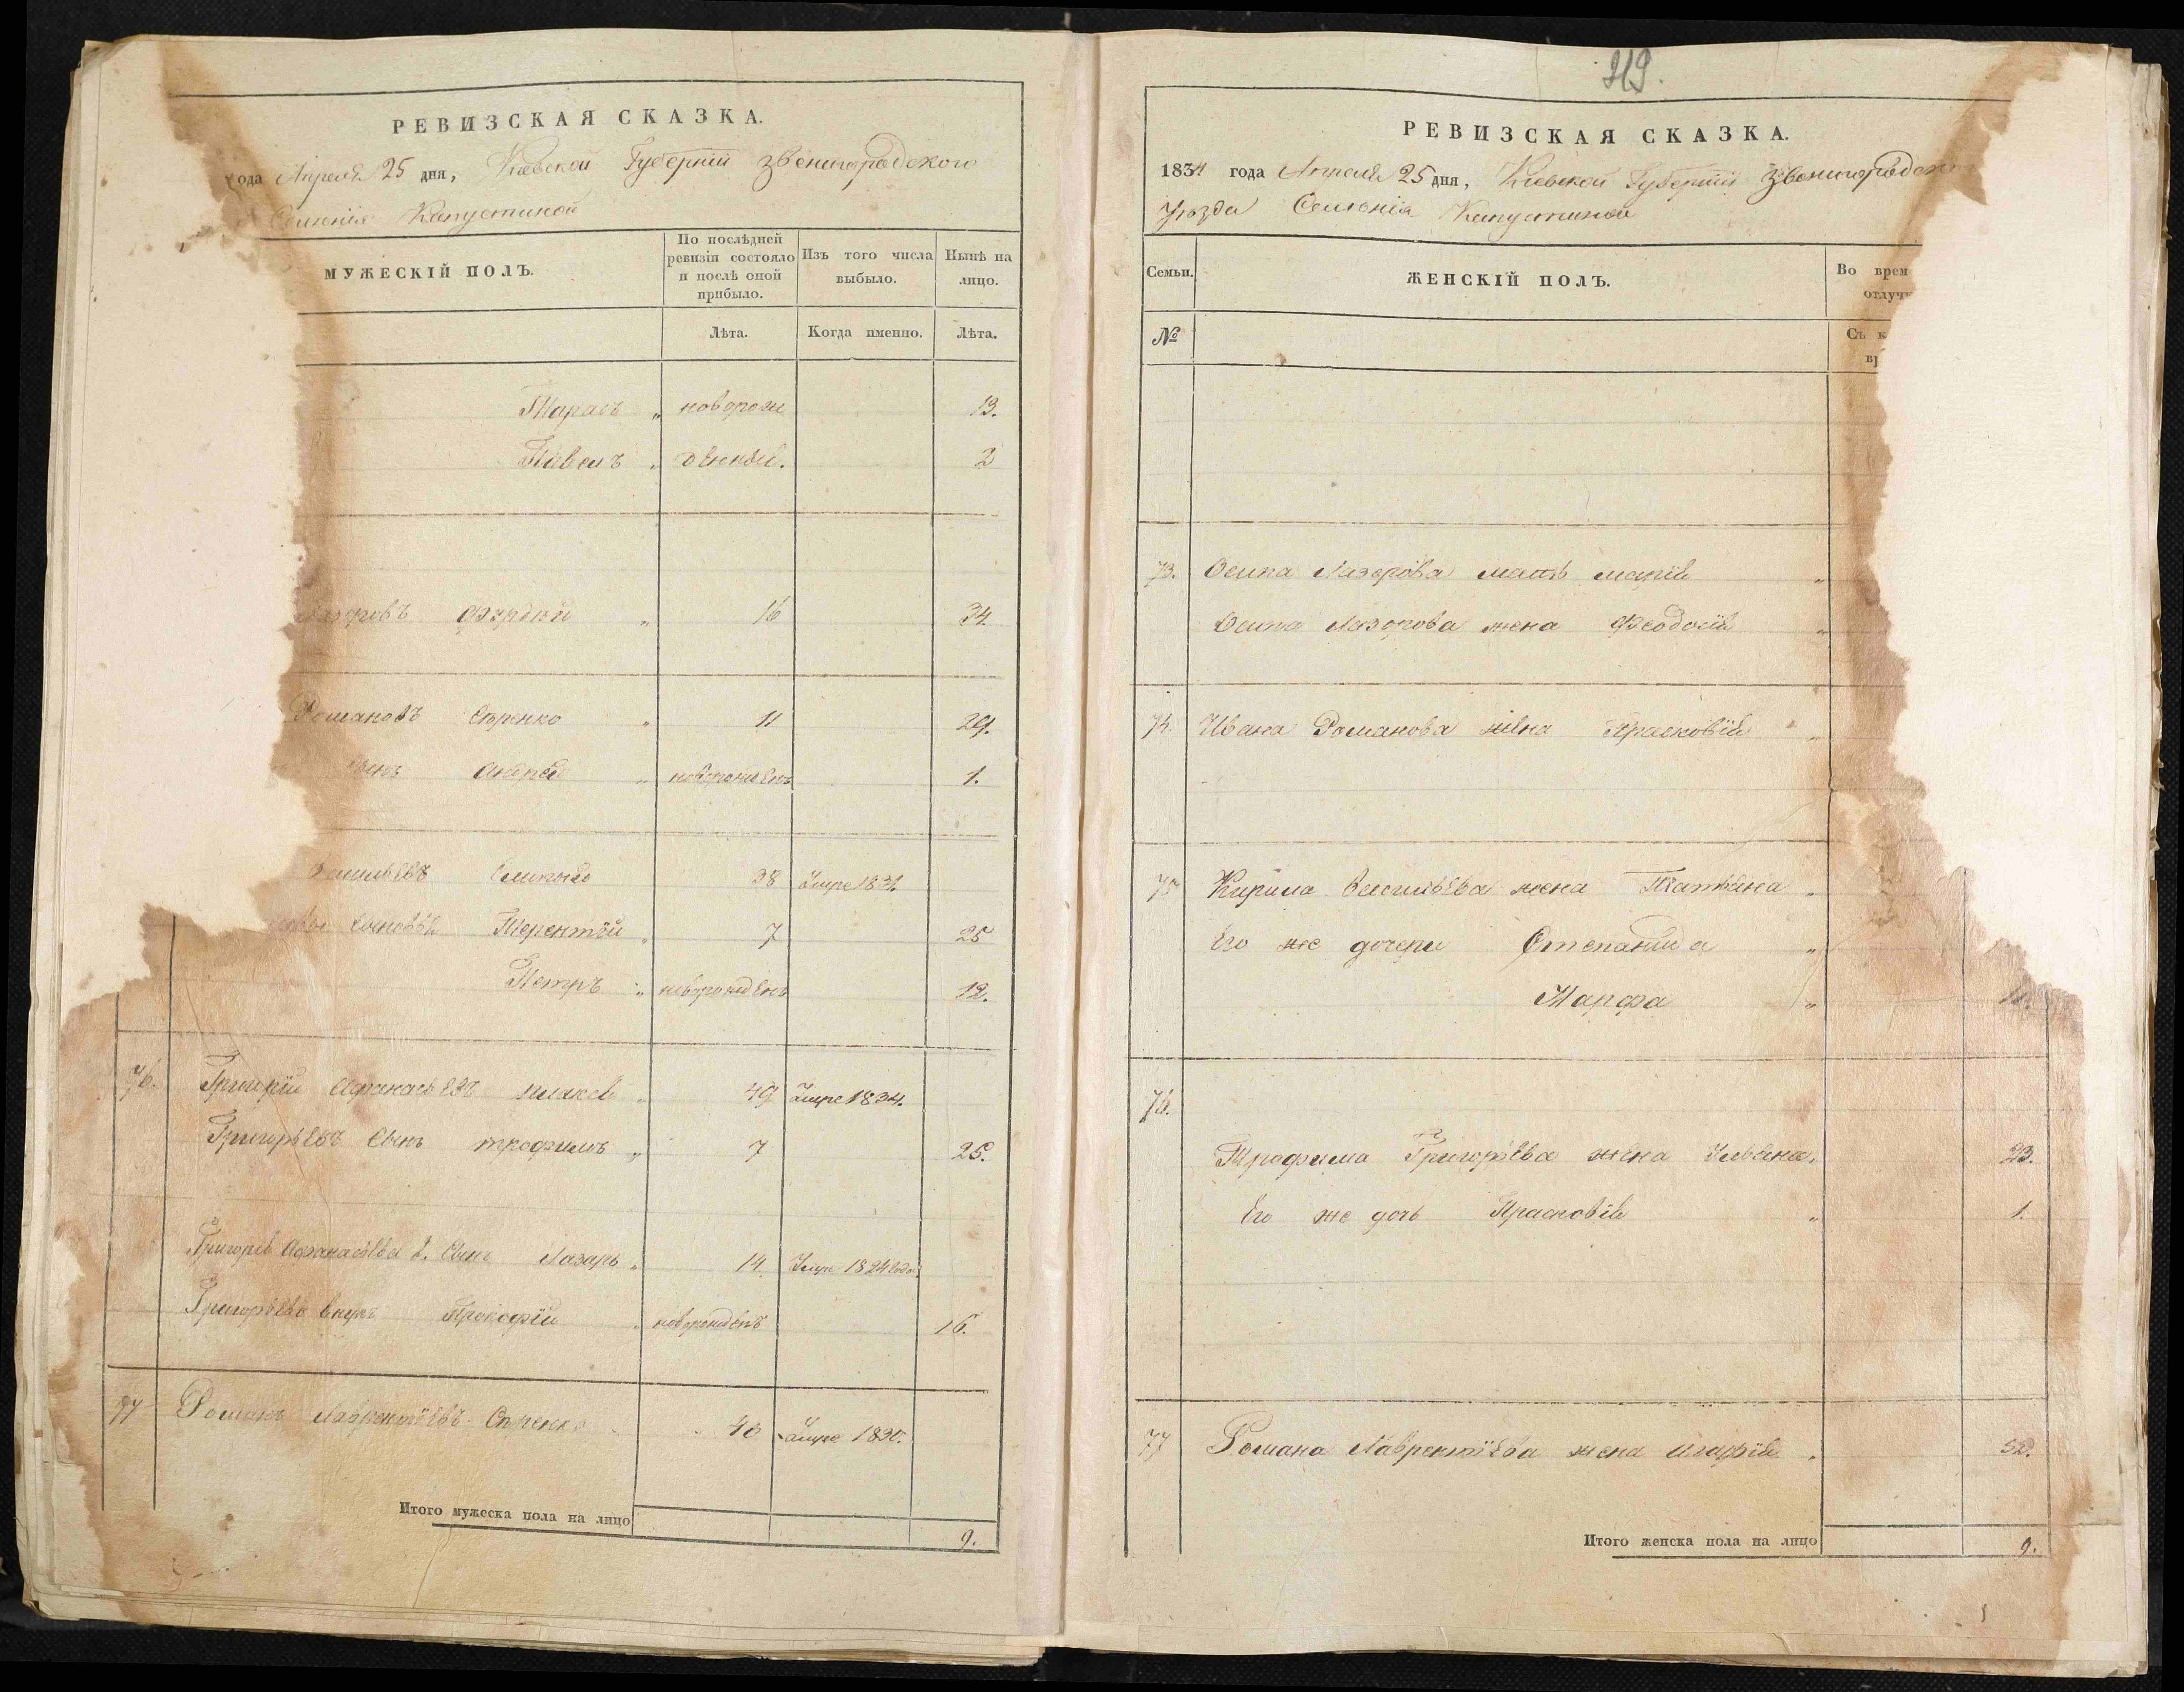 РЕВИЗСКАЯ СКАЗКА.
года Апреля 25 дня, Киевской Губернiи Звенигородского
Селенiя Капустиной
МУЖЕСКIЙ ПОЛЪ.
По послѣдней ревизiи состояло и послѣ оной прибыло.
Изъ того числа выбыло.
Нынѣ на лицо.
Лѣта.
Когда именно.
Лѣта.
Тарасъ „ новорож 13.
Павелъ „ денные. 2
16 34.
Романовъ 11 29.
Сынъ Андрей „ новорожденъ 1.
38 Умре 1831.
Сыновья Терентiй „ 7 25
Петръ „ новорожденъ 12.
76. Григорiй Афанасьевъ 49 Умре 1834.
Григорьевъ Сынъ трофимъ „ 7 25.
Григорiя Афанасьева 2. Сынъ Лазарь „ 14 Умре 1824 года
Григорьева внукъ Прокофiй „ новорожденъ 16.
77 Романъ Лаврентiевъ 40 Умре 1830.
Итого мужеска пола на лицо
9.
319.
РЕВИЗСКАЯ СКАЗКА.
1834 года Апреля 25 дня, Киевской Губернiи Звенигородского
Уѣзда Селенiя Капустиной
Семьи.
ЖЕНСКIЙ ПОЛЪ.
Во врем
отлучк
№
Съ к
вр
73. Осипа Лазорова мать марiя „
Осипа Лазорова жена Феодосiя „
74. Ивана Романова жена Прасковiя „
75 Кирила Васильева жена Татьяна „
Его же дочери Степанида „
Марфа „
76.
Трофима Григорьева жена Ульяна. 23.
Его же дочь Прасковiя „ 1.
77 Романа Лаврентiева жена Агафiя . 52.
Итого женска пола на лицо
9.